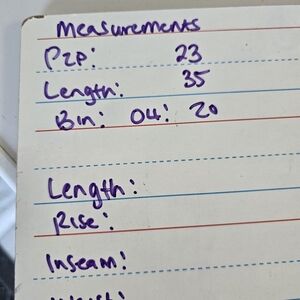 Measurements
P2P: 23
Length: 35
Bin: 04: 20
Length:
Rise:
Inseam: